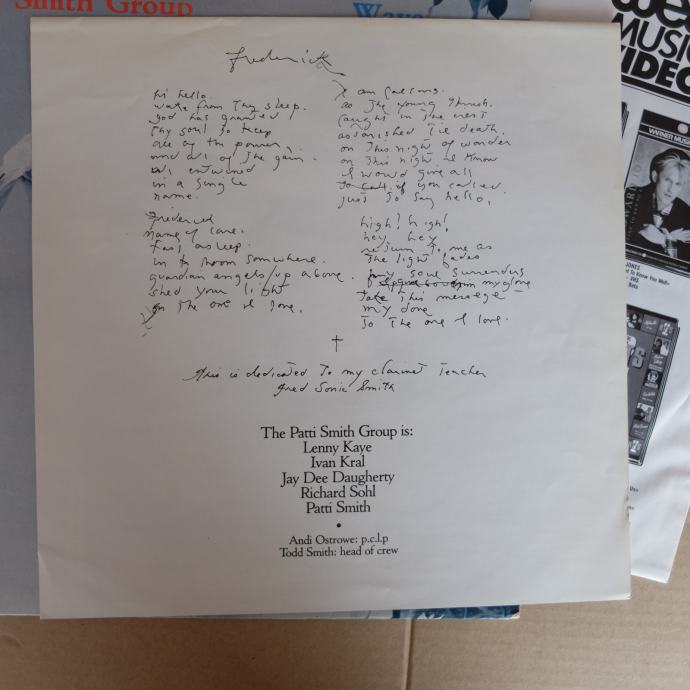 Smith Group
Wave
Frederick
hi hello.
wake from thy sleep.
god has granted
thy soul to keep
all of the power,
and all of the gain.
all entwined
in a single
name.
Frederick
name of care.
fast asleep.
in a room somwhere.
guardian angels up above.
shed your light
on the one I love.
I am calling.
as the young thrush.
caught in the nest
astonished
on this night of wonder
on this night. I know
I would give all
if you called.
just to say hello.
high! high!
hey hey
return to me as
the light fades
my soul surrenders
my glove
take this message
my dove
to the one I love.
This is dedicated to my clarinet teacher
fred Sonic Smith
The Patti Smith Group is:
Lenny Kaye
Ivan Kral
Jay Dee Daugherty
Richard Sohl
Patti Smith
•
Andi Ostrowe: p.c.l.p
Todd Smith: head of crew
MUSIC
VIDEO
WARNER MUSIC
JONES